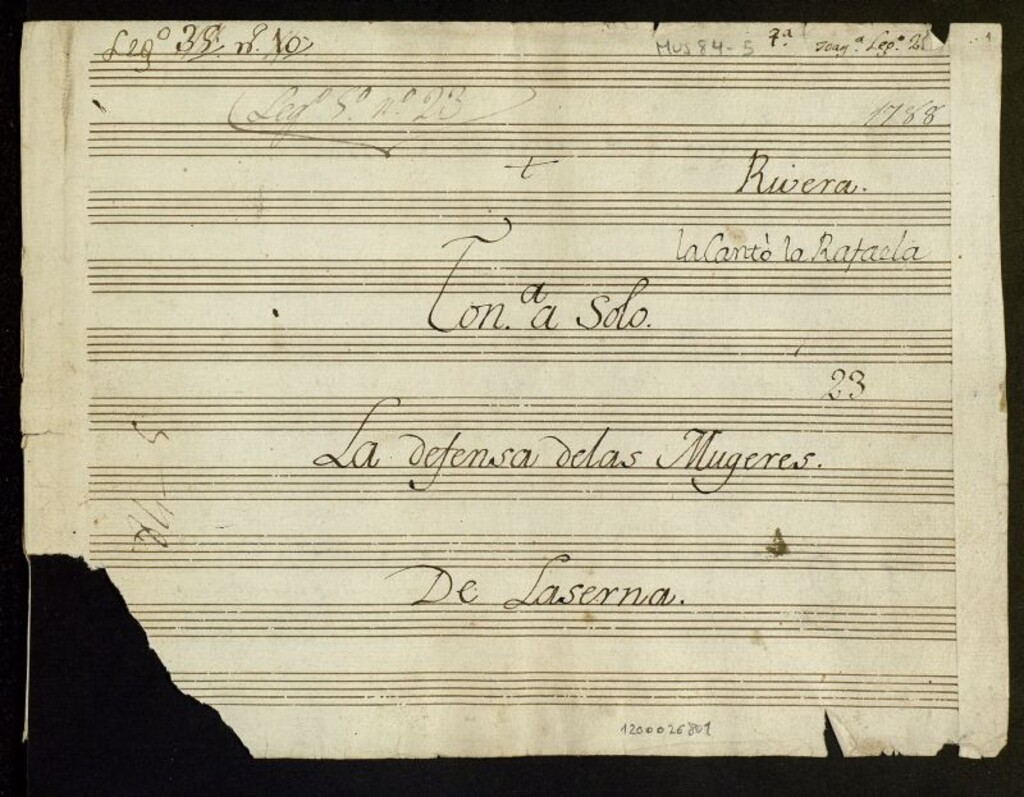 Leg.º 35. nº. 10. MUS 84-5 7.ª
Leg.º 5.º nº. 23
1788
+
Rivera.
la Cantò la Rafaela
Ton.ª a Solo.
23
La defensa delas Mugeres.
De Laserna.
1200026801